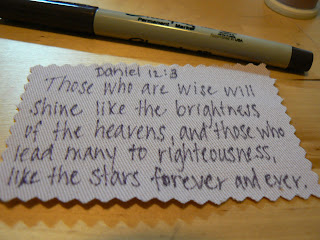 Daniel 12:3
Those who are wise will
shine like the brightness
of the heavens, and those who
lead many to righteousness,
like the stars forever and ever.